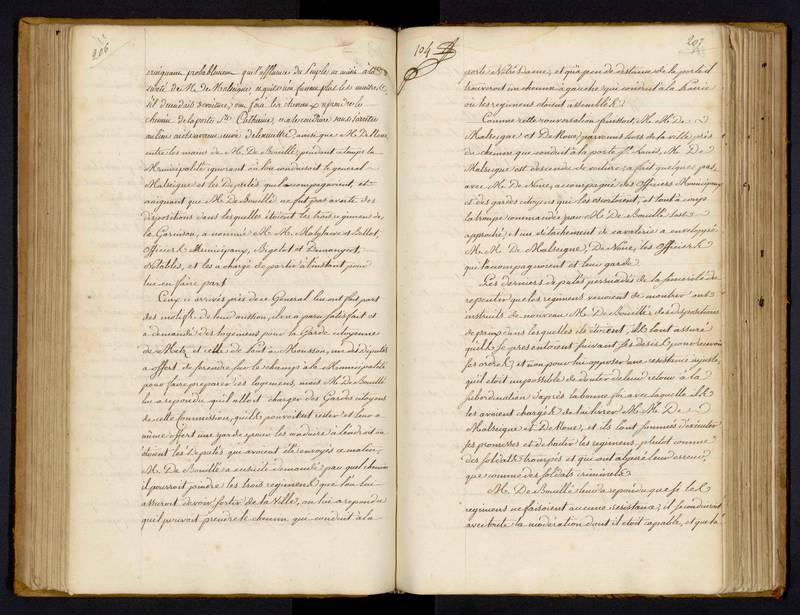 206
craignant probablement que l'affluence du Peuple ne nuise à la
sureté de M. De Malseigne, et qu'il ne fuvent plus les maitres,
s'il demeurait en voiture,
chemin de la porte Ste Catherine, et a le conduire sans s'arrêter
ainsi que M. De Noue
entre les mains de M. De Bouillé, pendant ce temps la
Municipalité ignorant où l'on conduisoit le general
Malseigne et les Deputés qui l'accompagnoient, et
craignant que M. De Bouillé ne fut pas averti des
dispositions dans lesquelles étoient les trois regimens de
la Garnison, a nommé M. M. Malglaive et Rollot,
Officiers Municipaux, Bigelot et Demangeot,
Notables, et les a chargé de partir à l'instant pour
lui en faire part
Ceux ci arrivés près de ce General lui ont fait part
des motifs de leur mission, il en a paru satisfait et
a demandé des logemens pour la Garde citoyenne
de Metz et celle de Pont à Mousson, un des députés
a offert de se rendre sur le champ à la Municipalité
pour faire preparer les logemens, mais M. De Bouillé
lui a repondu qu'il alloit charger des Gardes citoyens
de cette commission, qu'ils pouvoient rester et leur a
même offert une garde pour les conduire à l'endroit où
étoient les Deputés qui avoient été envoyés ce matin.
M. De Bouillé a ensuite demandé, par quel chemin
il pourroit joindre les trois regimens que l'on lui
assuroit devoir sortir de la Ville, on lui a repondu
qu'il pouvoit prendre le chemin qui conduit à la
104
207
porte Notre Dame, et qu'à peu de distance de la porte il
trouveroit un chemin à gauche qui conduit à la prairie
où les regimens étoient assemblés.
Comme cette conversation finissoit, M. M. De
Malseigne et De Noue, parvenus hors de la ville, près
du chemin qui conduit à la porte St. Louis, M. De
Malseigne est descendu de voiture, a fait quelques pas
avec M. De Noue, accompagné des Officiers Municipaux
et des gardes citoyens qui les escortoient, et tout à coup
la troupe commandée par M. De Bouillé s'est
approchée, et un détachement de cavalerie a enveloppé
M. M. De Malseigne, De Noue, les Officiers
qui l'accompagnoient et leur garde
Les derniers deputés persuadés de la sincerité du
repentir que les regimens venoient de montrer ont
instruits de nouveau M. De Bouillé, des dispositions
de paix dans lesquelles ils étoient, ils l'ont assuré
qu'ils se presentoient suivant ses desirs pour recevoir
ses ordres, et non pour lui opposer une resistance injuste,
qu'il étoit impossible de douter de leur retour à la
subordination d'après la bonne foi avec laquelle ils
les avoient chargés de lui livrer M. M. De
Malseigne et De Noue, et ils l'ont sommés d'executer
ses promesses et de traiter les regimens plutot comme
des soldats trompés et qui ont abjuré leur erreur,
que comme des soldats criminels.
M. De Bouillé leur a repondu que si les
regimens ne faisoient aucune resistance, il se conduiroit
avec toute la modération dont il étoit capable, et que là